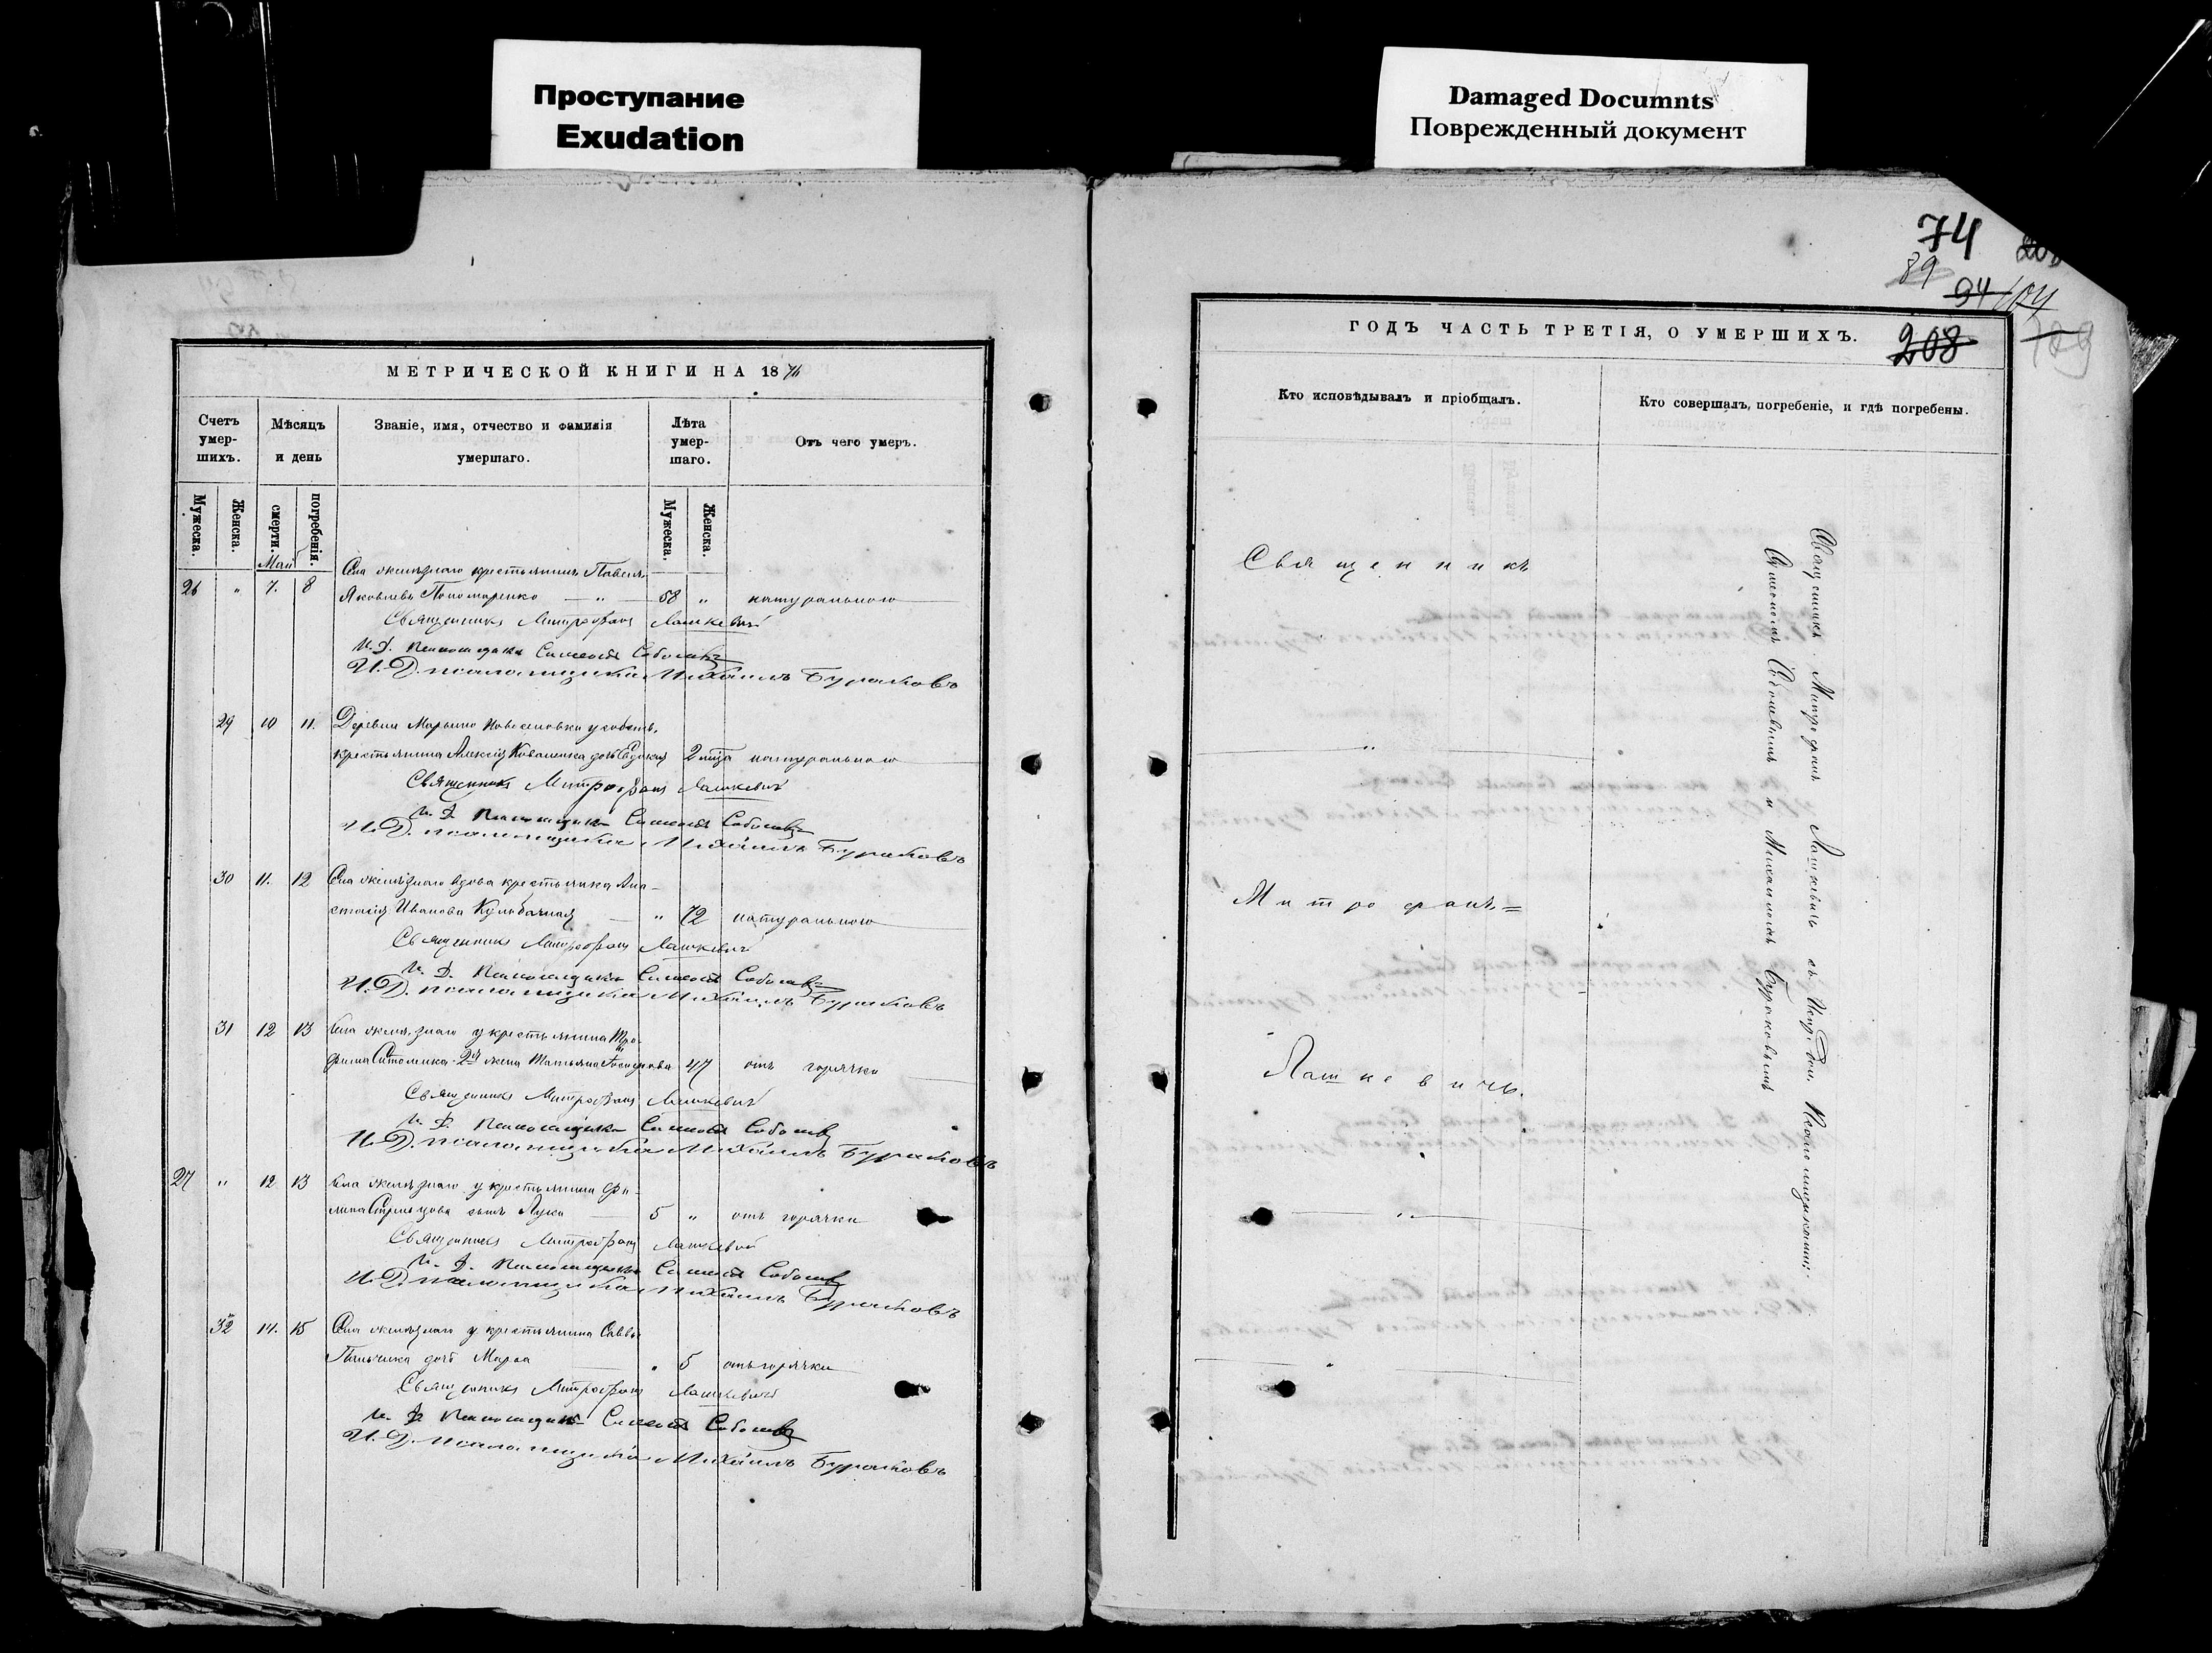 Проступание
Exudation
Damaged Documnts
Поврежденный документ
74
89
94
208
МЕТРИЧЕСКОЙ КНИГИ НА 18
Счетъ умер-шихъ.
Мѣсяцъ и день
Званіе, имя, отчество и фамилія умершаго.
Лѣта умер-шаго.
Отъ чего умеръ.
Мужеска.
Женска.
смерти.
погребенія.
Мужеска.
Женска.
Май
Села крестьянинъ Павелъ
26 " 7. 8 Яковлевъ Пономаренко — " — 58 " натуральною
Священникъ Митрофанъ Лашкевичъ
И. Д. Псаломщика Симеонъ Соболевъ
И. Д. псаломщика Михаилъ Бураковъ
29 10 11. Деревни Марьино
крестьянина Алексія Коваленка дочь Евдокія 2 натуральною
Священникъ Митрофанъ Лашкевичъ
И. Д. Псаломщика Симеонъ Соболевъ
И. Д. псаломщика Михаилъ Бураковъ
30 11. 12 Села вдова крестьянка Ана-
стасія Иванова — " 72 натуральною
Священникъ Митрофанъ Лашкевичъ
И. Д. Псаломщика Симеонъ Соболевъ
И. Д. псаломщика Михаилъ Бураковъ
31 12 13 Села у крестьянина Тро-
фима жена Татьяна 47 отъ горячки
Священникъ Митрофанъ Лашкевичъ
И. Д. Псаломщика Симеонъ Соболевъ
И. Д. псаломщика Михаилъ Бураковъ
27 " 12 13 Села у крестьянина Фи-
липа сынъ Лука — 5 " отъ горячки
Священникъ Митрофанъ Лашкевичъ
И. Д. Псаломщика Симеонъ Соболевъ
И. Д. псаломщика Михаилъ Бураковъ
32 14. 15 Села у крестьянина Саввы
дочь Марѳа — " 5 отъ горячки
Священникъ Митрофанъ Лашкевичъ
И. Д. Псаломщика Симеонъ Соболевъ
И. Д. псаломщика Михаилъ Бураковъ
ГОДЪ ЧАСТЬ ТРЕТІЯ, О УМЕРШИХЪ.
Кто исповѣдывалъ и пріобщалъ.
Кто совершалъ погребеніе, и гдѣ погребены.
Священникъ
Митрофанъ
Лашкевичъ.
Священникъ Митрофанъ Лашкевичъ съ Испр. Дол. Псаломщиками:
Симеономъ Соболевымъ и Михаиломъ Бураковымъ